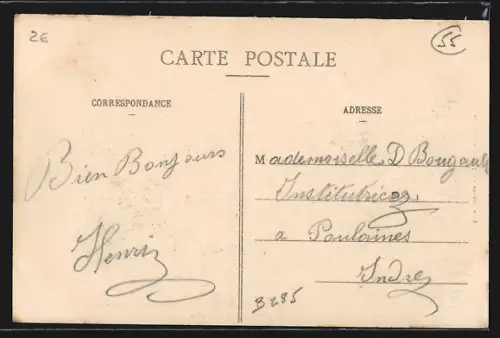 2E
55
CARTE POSTALE
CORRESPONDANCE
ADRESSE
Bien Bonjours
Henri
Mademoiselle D Bougault
Institutrice
a Poulaines
Indre
B285